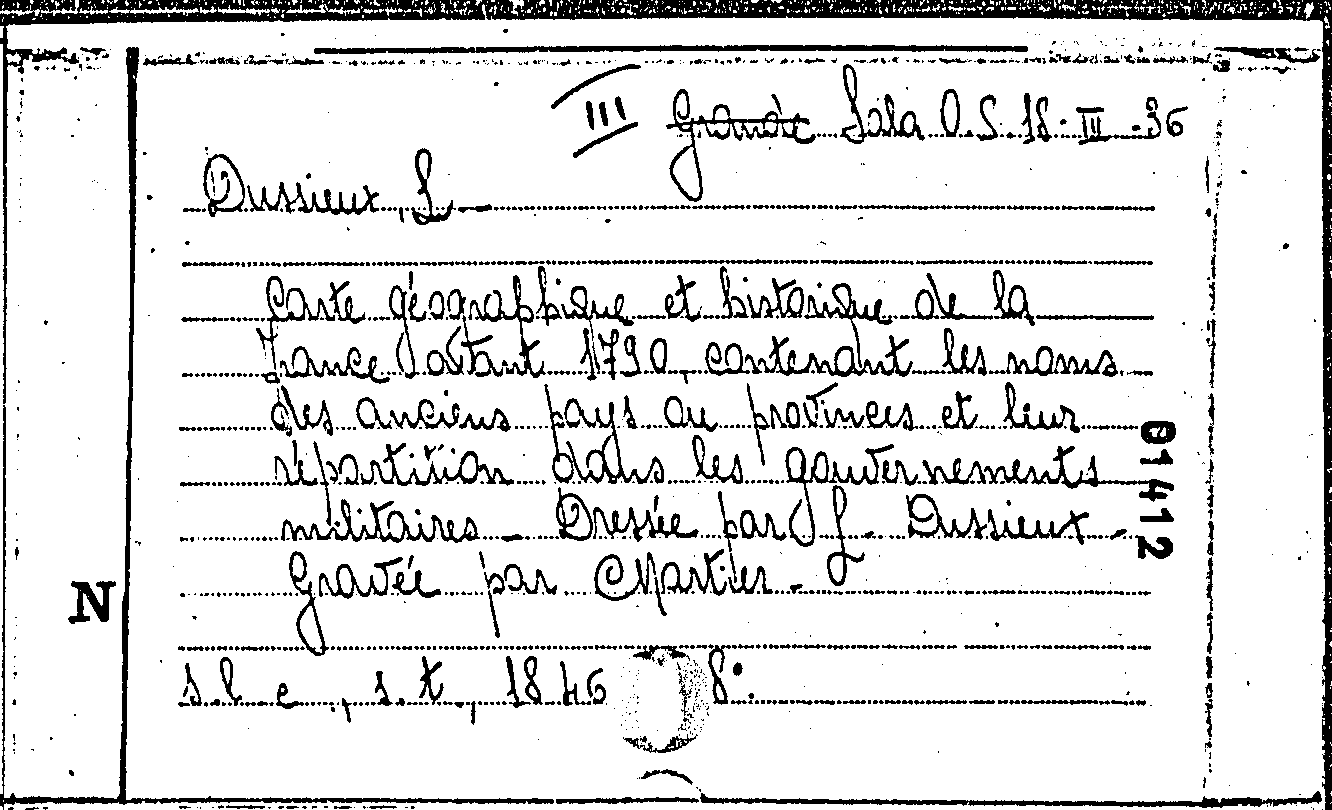 III Grande Sala O.S. 18-III-36
Dussieux, L.
Carte géographique et historique de la
France avant 1790, contenant les noms
des anciens pays ou provinces et leur
répartition dans les gouvernements
militaires - Dressée par L. Dussieux -
Gravée par Martier -
s.l.e., s.t., 1846 8º.
N
01412